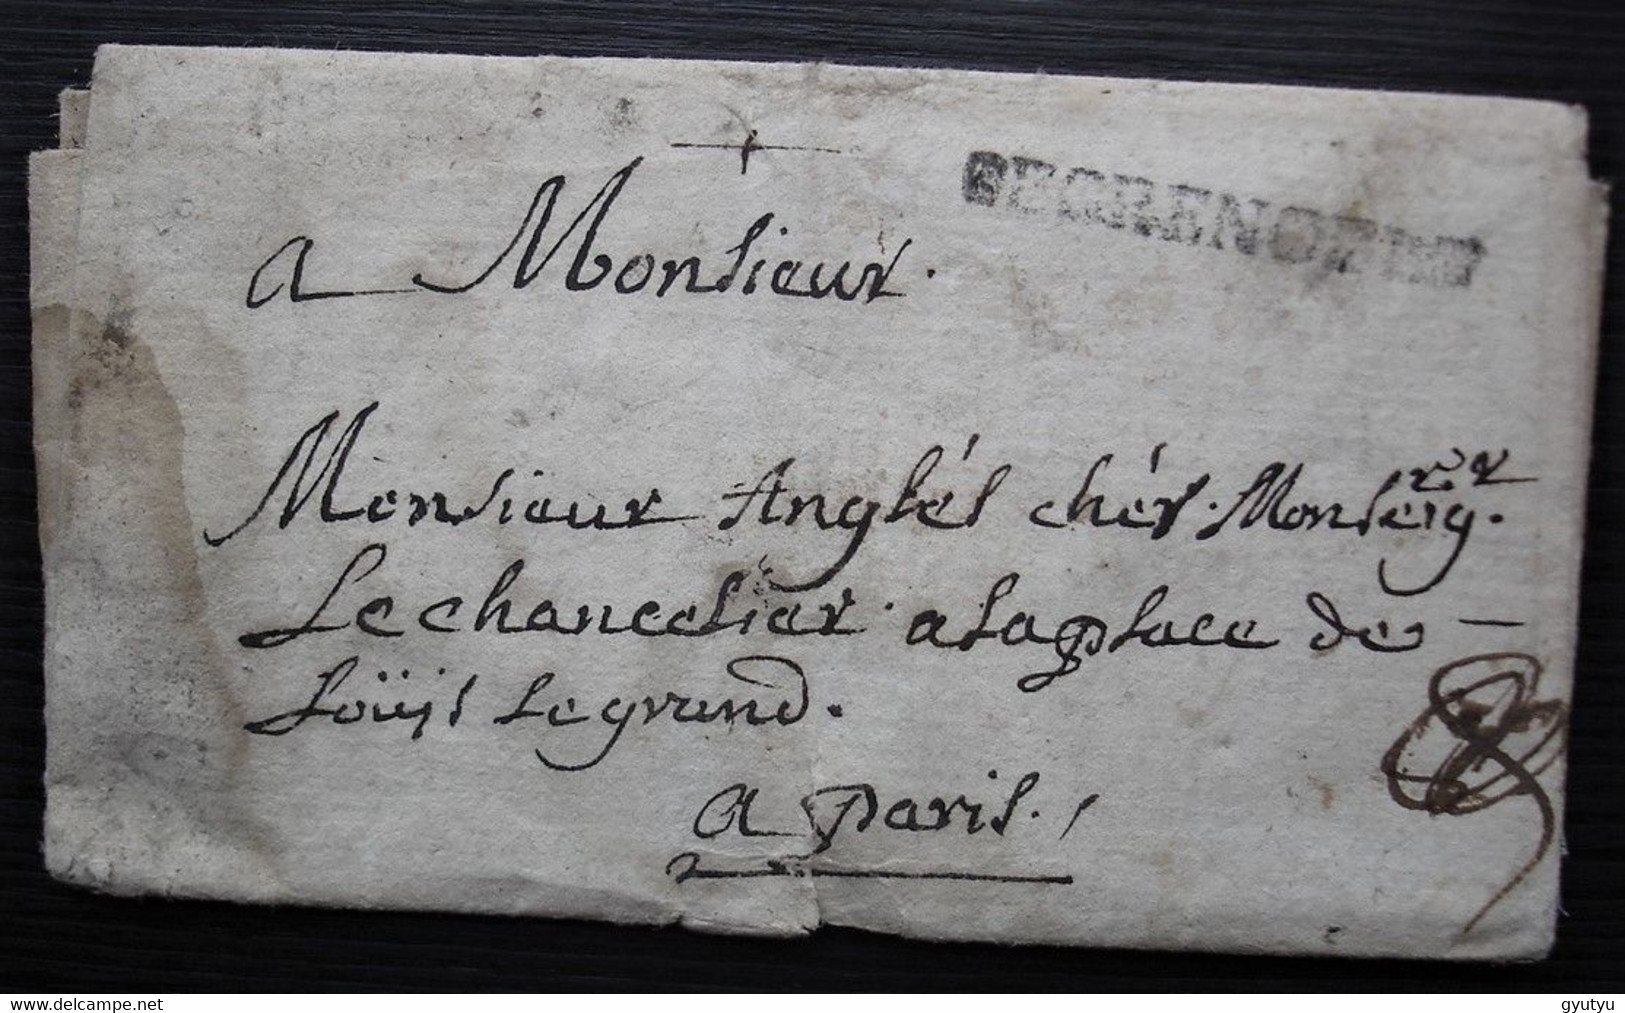 DEGRENOBLE
a Monsieur.
Monsieur Anglés chés. Monseig.r
Le chancelier. a la place de
Loüis le grand.
a paris.
www.delcampe.net
gyutyu